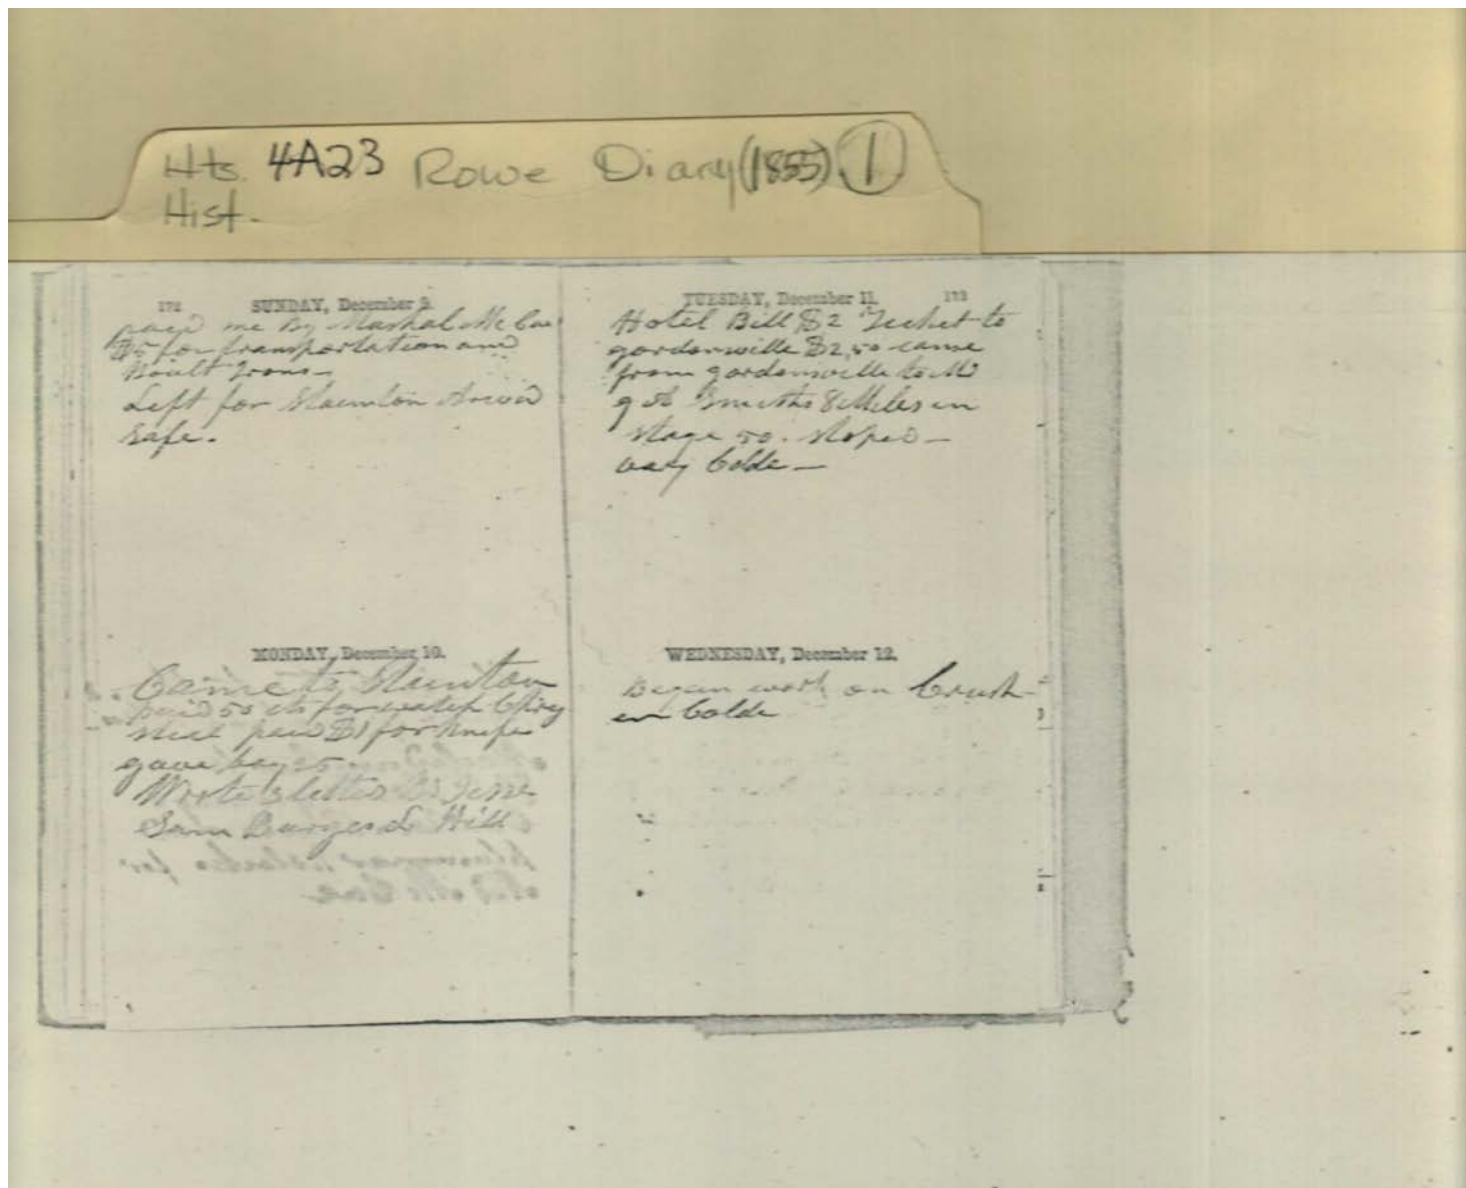 Hts. 4A23 Rowe Diary (1855). 1
Hist.
172 SUNDAY, December 9.
me By Marshal Mc
$5 for transportation and
Left for Staunton Arived
safe.
MONDAY, December 10.
Came to Staunton
paid 50 cts for watch
paid $1 for knife
gave boy 25
Wrote 3 letters
Sam Burges & Hill
TUESDAY, December 11. 173
Hotel Bill $2 Ticket to
gordonsville $2,50 came
from gordonsville to
Smiths 8 Miles in
stage 50. stoped —
vary Colde —
WEDNESDAY, December 12.
Began work on Crush
Colde